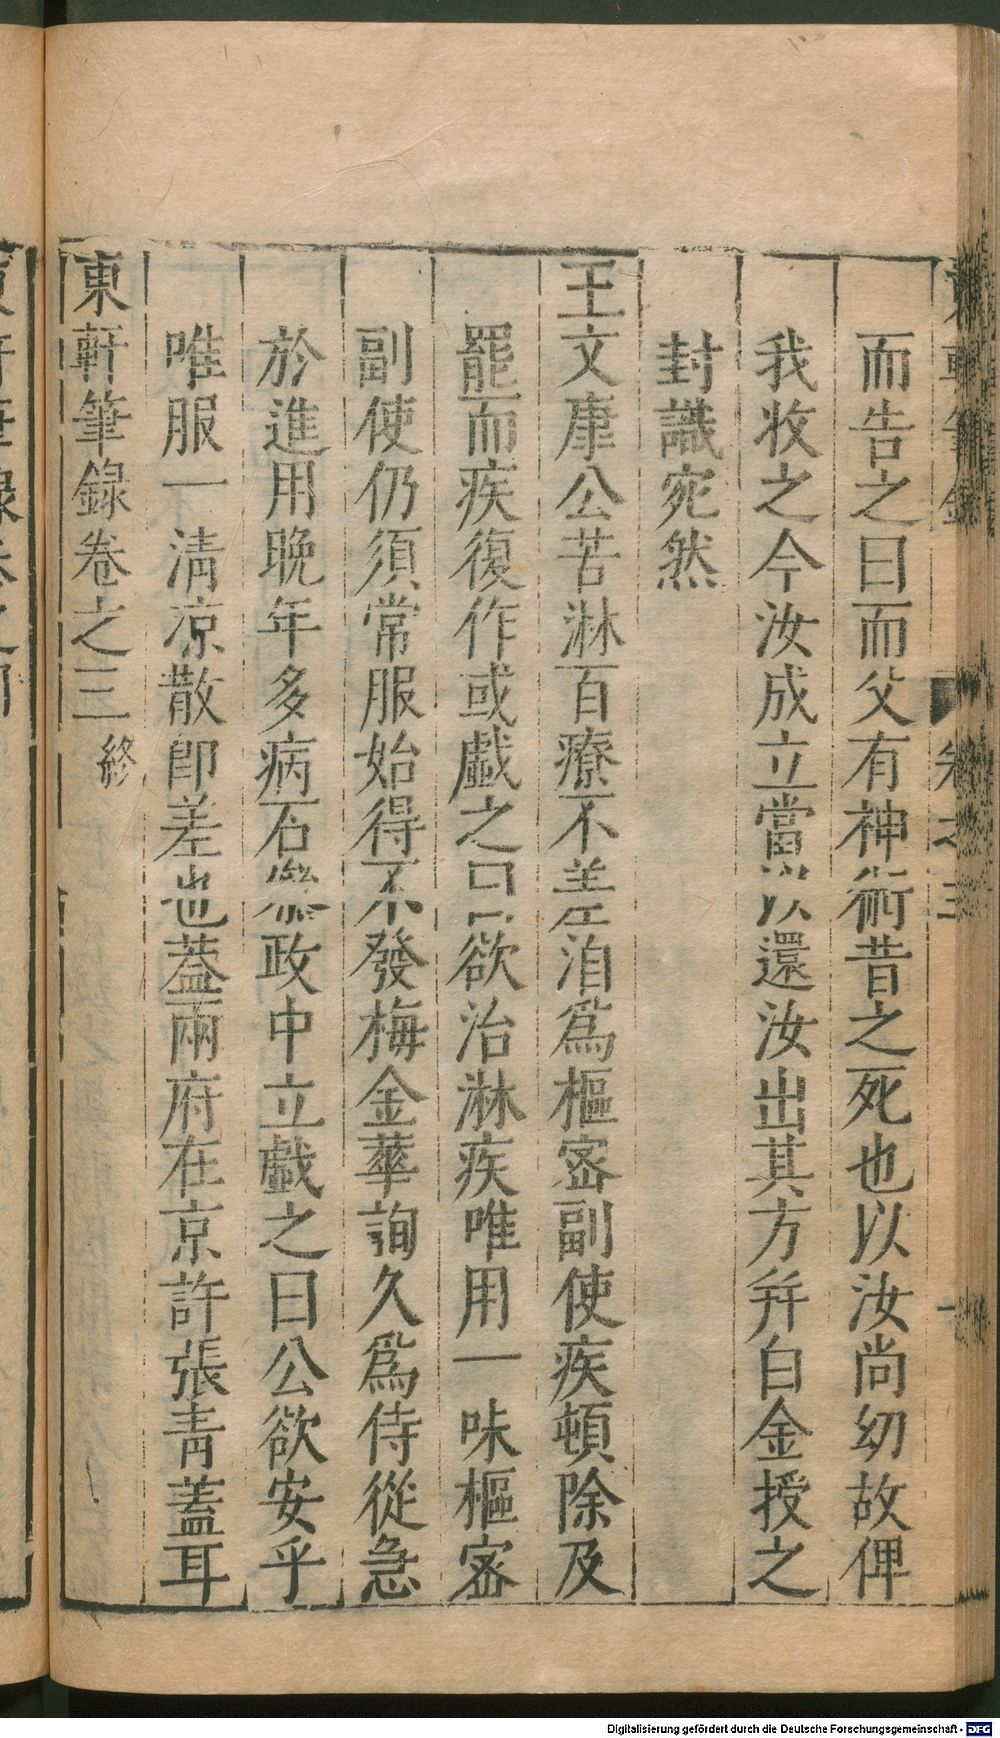 而告之曰而父有神術昔之死也以汝尚幼故俾
我收之今汝成立當以還汝出其方幷白金授之
封識宛然
王文康公苦淋百療不差洎爲樞密副使疾頓除及
罷而疾復作或戲之曰欲治淋疾唯用一味樞密
副使仍須常服始得不發梅金華詢久爲侍從急
於進用晚年多病石叅政中立戲之曰公欲安乎
唯服一清凉散卽差也蓋兩府在京許張靑蓋耳
東軒筆錄卷之三終
Digitalisierung gefördert durch die Deutsche Forschungsgemeinschaft - DFG